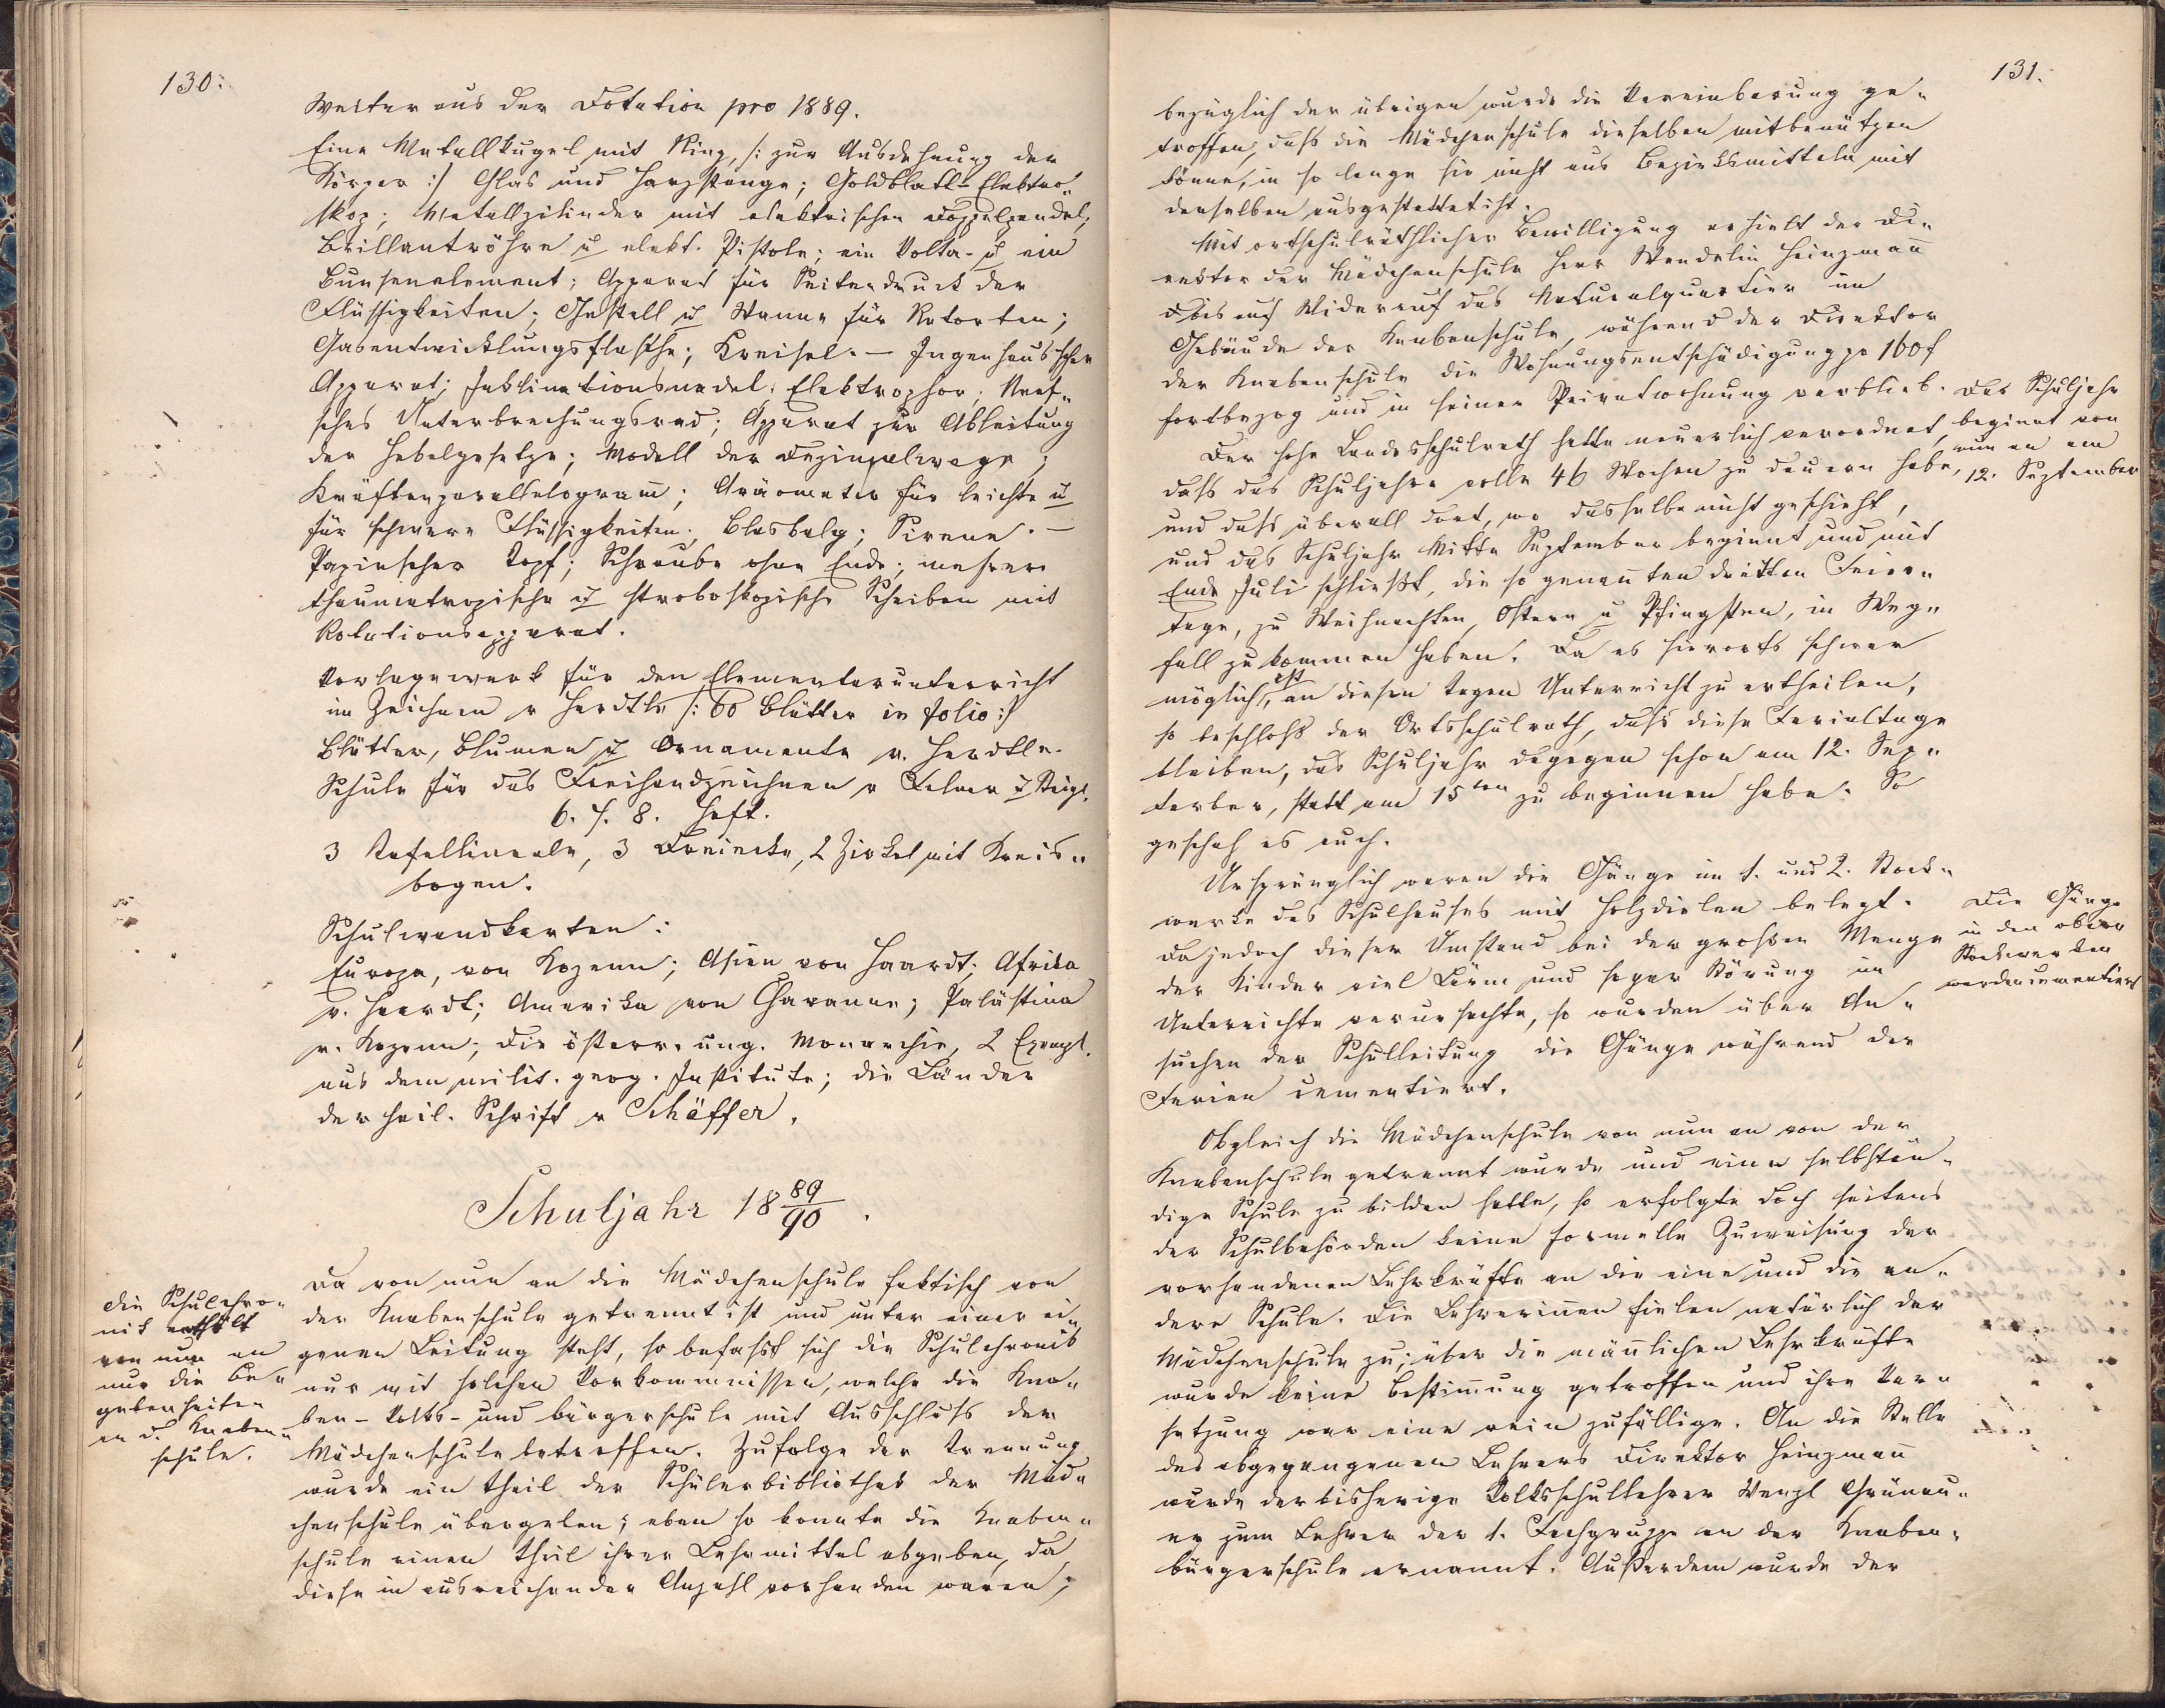 130.
Weiter aus der Dotation pro 1889.
Eine Metallkugel mit Ring, /: zur Ausdehnung der
Körper :/ Glas und Harzstange; Goldblatt-Elektro„
skop; Metallzilinder mit elektrischen Doppelpendel;
Brillantröhre u elekt. Pistole; ein Volta- u ein
Bunsenelement; Apparat für Seitendruck der
Flüssigkeiten; Gestell u Wanne für Retorten;
Gasentwicklungsflasche; Kreisel. – Ingenhaus'scher
Apparat; Inklinationsnadel; Elektrophor; Neef„
sches Unterbrechungsrad; Apparat zur Ableitung
der Hebelgesetze; Modell der Dezimalwage;
Kräftenparallelogram̅; Aräometer für leichte u
für schwere Flüssigkeiten; Blasbalg; Sirene. –
Papinscher Topf; Schraube ohne Ende; mehrere
thaumatropische u stroboskopische Scheiben mit
Rotationsapparat.
Vorlagewerk für den Elementarunterricht
im Zeichnen v Herdtle /: 60 Blätter in folio :/
Blätter, Blumen u Ornamente v. Herdtle.
Schule für das Freihandzeichnen v Fellner u Steigl.
6. 7. 8. Heft.
3 Tafellineale, 3 Dreiecke, 2 Zirkel mit Kreis„
bogen.
Schulwandkarten:
Europa, von Kozenn; Asien von Haardt; Afrika
v. Haardt; Amerika von Chavanne; Palästina
v. Kozenn; die österr. ung. Monarchie, 2 Exempl.
aus dem milit. geog. Institute; die Länder
der heil. Schrift v Schäffer.
Schuljahr 18 89/90.
Die Schulchro„
nik enthält
von nun an
nur die Be„
gebenheiten
an d. Knaben„
schule.
Da von nun an die Mädchenschule faktisch von
der Knabenschule getrennt ist und unter einer ei„
genen Leitung steht, so befasst sich die Schulchronik
nur mit solchen Vorkommnissen, welche die Kna„
ben- Volks- und Bürgerschule mit Ausschluss der
Mädchenschule betreffen. Zufolge der Trennung
wurde ein Theil der Schülerbibliothek der Mäd„
chenschule übergeben; eben so konnte die Knaben„
schule einen Theil ihrer Lehrmittel abgeben, da
diese in ausreichender Anzahl vorhanden waren;
131.
bezüglich der übrigen wurde die Vereinbarung ge„
troffen, dass die Mädchenschule dieselben mitbenützen
könne, in so lange sie nicht aus Bezirksmitteln mit
denselben ausgestattet ist.
Mit ortschulräthlicher Bewilligung erhielt der Di„
rektor der Mädchenschule Herr Wendelin Heinzman̅
bis auf Widerruf das Naturalquartier im
Gebäude der Knabenschule, während der Direktor
der Knabenschule die Wohnungsentschädigung pr 160 f
fortbezog und in seiner Privatwohnung verblieb.
Das Schuljahr
beginnt von
nun an am
12. September
Der hohe Landesschulrath hatte neuerlich verordnet,
dass das Schuljahr volle 46 Wochen zu dauern habe,
und dass überall dort, wo dasselbe nicht geschieht,
und das Schuljahr Mitte September beginnt und mit
Ende Juli schließt, die so genan̅ten dritten Feier„
tage, zu Weihnachten, Ostern u Pfingsten, in Weg„
fall zu kommen haben. Da es hierorts schwer
möglich ist, an diesen Tagen Unterricht zu ertheilen,
so beschloss der Ortsschulrath, dass diese Ferialtage
bleiben, das Schuljahr dagegen schon am 12. Sep„
tember, statt am 15ten zu beginnen habe. So
geschah es auch.
Ursprünglich waren die Gänge im 1. und 2. Stock„
werke des Schulhauses mit Holzdielen belegt.
Da jedoch dieser Umstand bei der großen Menge
der Kinder viel Lärm und sogar Störung im
Unterrichte verursachte, so wurden über An„
suchen der Schulleitung die Gänge während der
Ferien cementiert.
Die Gänge
in den obern
Stockwerken
werden cementiert
Obgleich die Mädchenschule von nun an von der
Knabenschule getrennt wurde und eine selbstän„
dige Schule zu bilden hatte, so erfolgte doch seitens
der Schulbehörden keine formelle Zuweisung der
vorhandenen Lehrkräfte an die eine und die an„
dere Schule. Die Lehrerin̅en fielen natürlich der
Mädchenschule zu; über die män̅lichen Lehrkräfte
wurde keine Bestim̅ung getroffen und ihre Ver„
setzung war eine rein zufällige. An die Stelle
des abgegangenen Lehrers Direktor Heinzman̅
wurde der bisherige Volksschullehrer Wenzl Grünau„
er zum Lehrer der 1. Fachgruppe an der Knaben„
bürgerschule ernannt. Außerdem wurde der